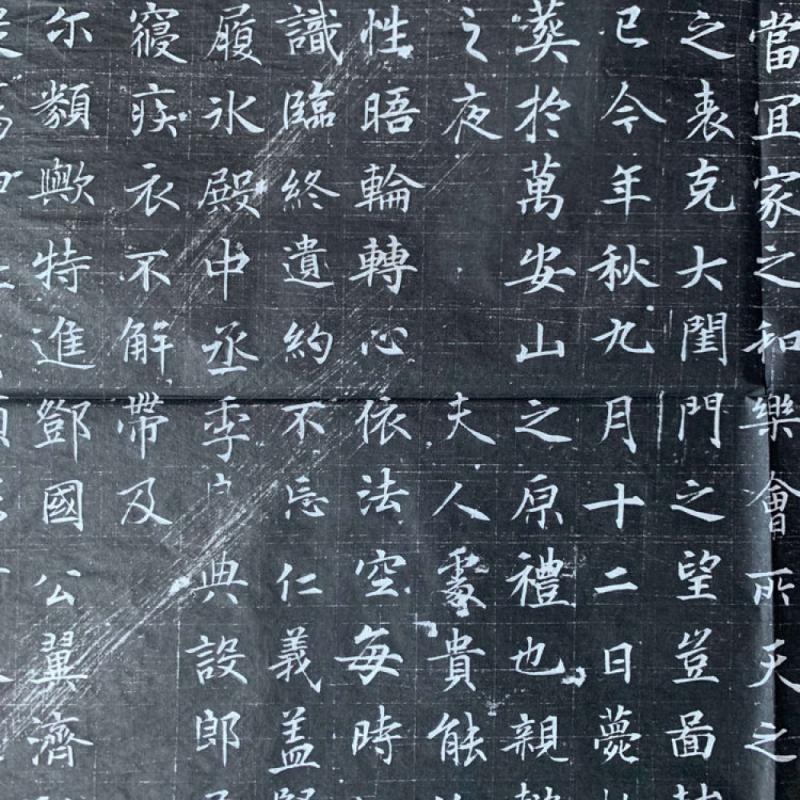 當宜家之和樂會所天之
之表克大閨門之望豈啚
已今年秋九月十二日薨
葬於萬安山之原禮也親
之夜夫人處貴能
性晤輪轉心依法空每時
識臨終遺約不忘仁義盖
履氷殿中丞季 典設郎
寝疾衣不解帶及
尒類歟特進鄧國公翼濟